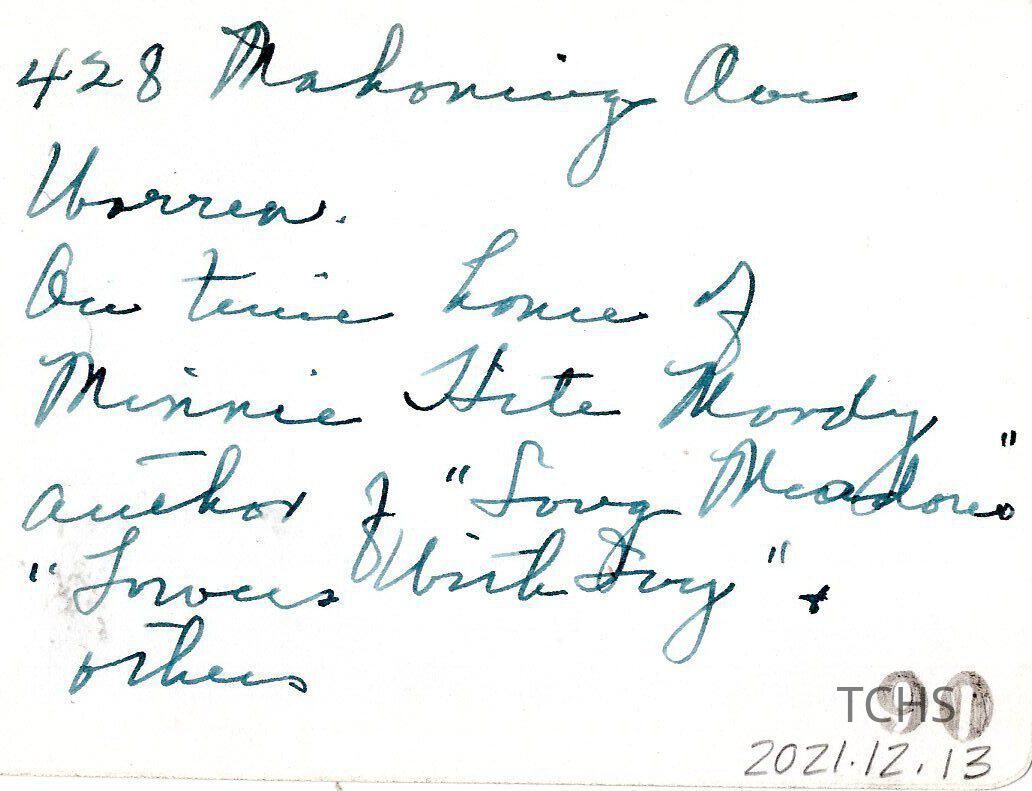 428 Mahoning Ave
Warren.
One time home of
Minnie Hite Moody
author of "Long Meadows"
"Towers With Ivy" +
others
TCHS 90
2021.12.13